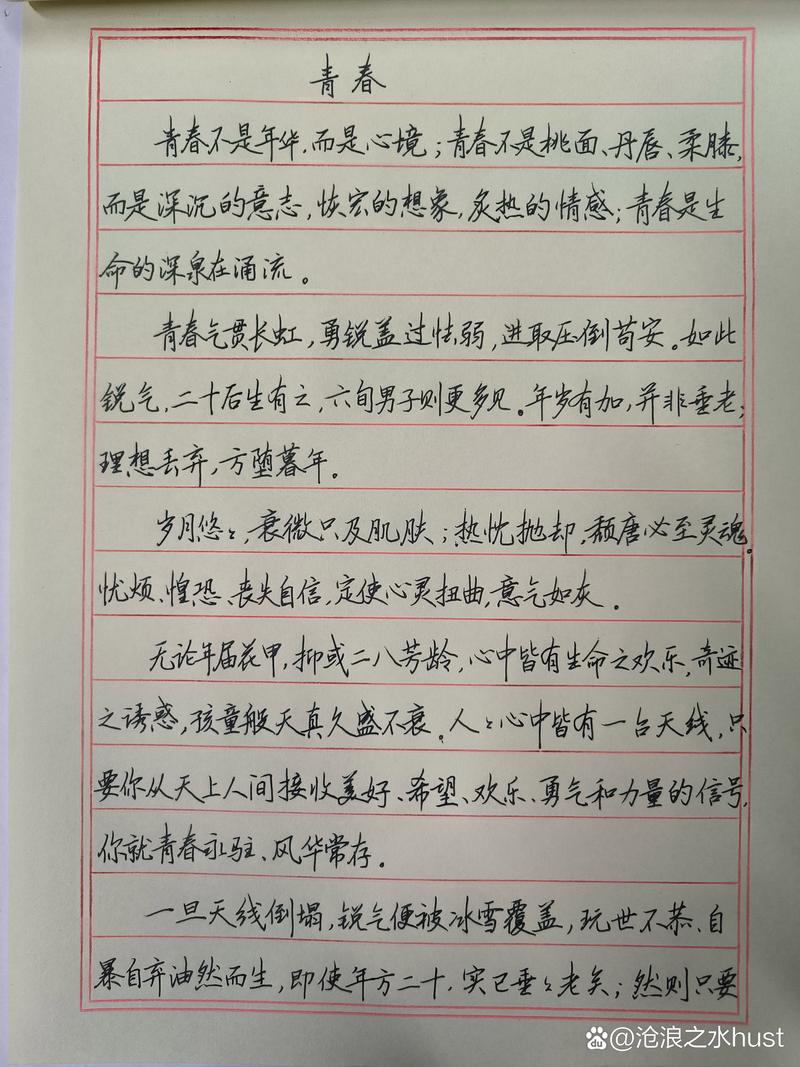 青春
青春不是年华,而是心境;青春不是桃面、丹唇、柔膝,
而是深沉的意志,恢宏的想象,炙热的情感;青春是生
命的深泉在涌流。
青春气贯长虹,勇锐盖过怯弱,进取压倒苟安。如此
锐气,二十后生有之,六旬男子则更多见。年岁有加,并非垂老;
理想丢弃,方堕暮年。
岁月悠々,衰微只及肌肤;热忱抛却,颓唐必至灵魂。
忧烦、惶恐、丧失自信,定使心灵扭曲,意气如灰。
无论年届花甲,抑或二八芳龄,心中皆有生命之欢乐,奇迹
之诱惑,孩童般天真久盛不衰。人々心中皆有一台天线,只
要你从天上人间接收美好、希望、欢乐、勇气和力量的信号,
你就青春永驻、风华常存。
一旦天线倒塌,锐气便被冰雪覆盖,玩世不恭、自
暴自弃油然而生,即使年方二十,实已垂々老矣;然则只要
du @沧浪之水hust